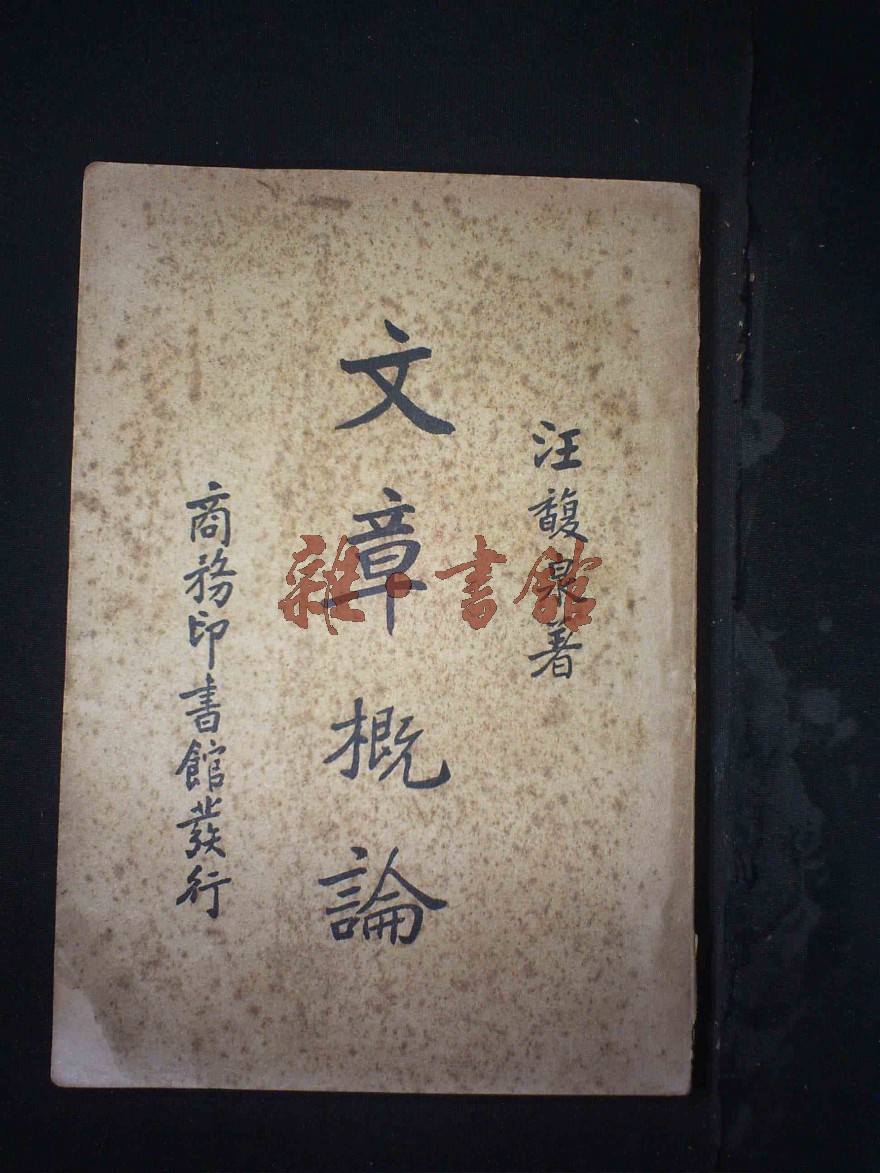 汪馥泉著
文章概論
商務印書館發行
雜·書館